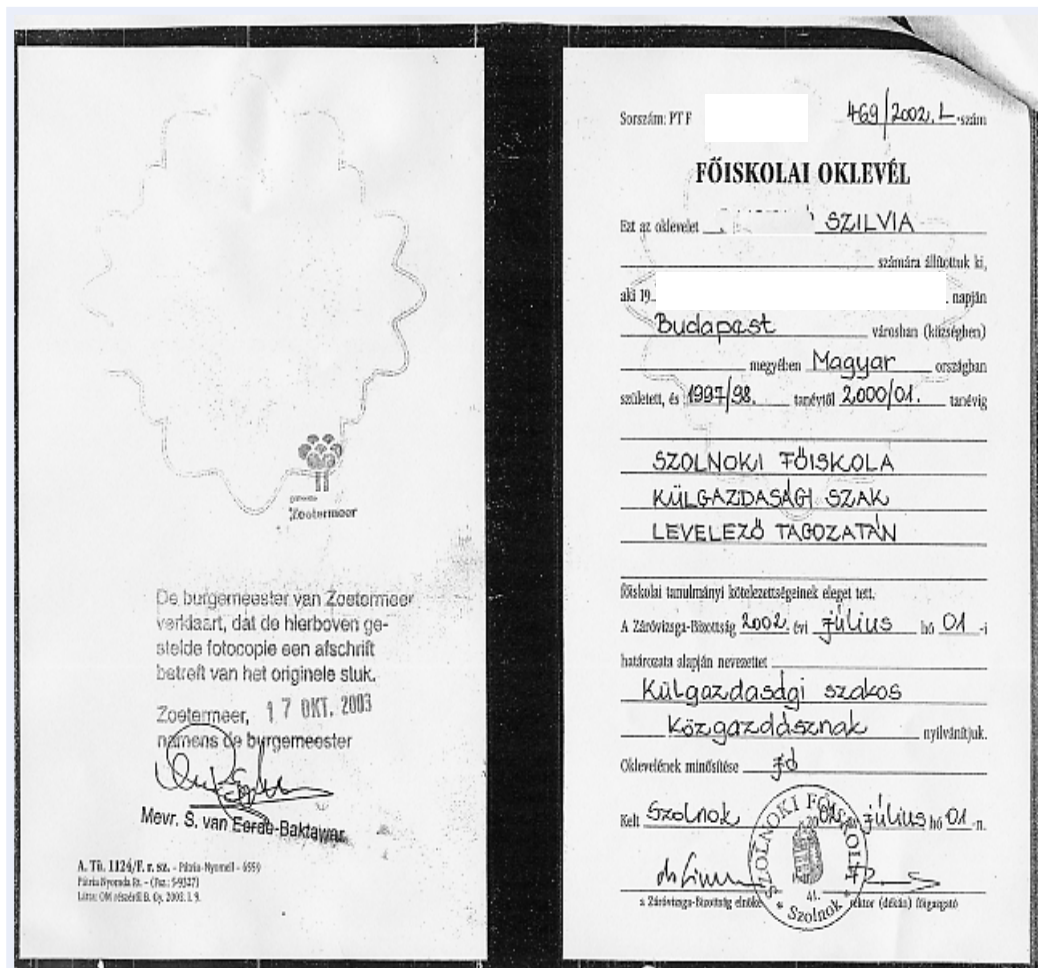 Zoetermeer
De burgemeester van Zoetermeer
verklaart, dat de hierboven ge-
stelde fotocopie een afschrift
betreft van het originele stuk.
Zoetermeer, 17 OKT. 2003
namens de burgemeester
Mevr. S. van Eerde-Baktawar
A. Tü. 1124/F. r. sz. - Pátria-Nyomell - 6559
Pátria Nyomda Rt. - (Fsz.: 5-9327)
Látta: OM részéről B. Gy. 2003. I. 9.
Sorszám: PT F 469/2002. L -szám
FŐISKOLAI OKLEVÉL
Ezt az oklevelet SZILVIA
számára állítottuk ki,
aki 19 napján
Budapest városban (községben)
megyében Magyar országban
született, és 1997/98. tanévtől 2000/01. tanévig
SZOLNOKI FŐISKOLA
KÜLGAZDASÁGI SZAK
LEVELEZŐ TAGOZATÁN
főiskolai tanulmányi kötelezettségeinek eleget tett.
A Záróvizsga-Bizottság 2002. évi július hó 01 -i
határozata alapján nevezettet
Külgazdasági szakos
Közgazdásznak nyilvánítjuk.
Oklevelének minősítése jó
Kelt Szolnok július hó 01 -n.
SZOLNOKI FŐISKOLA
41.
* Szolnok *
a Záróvizsga-Bizottság elnöke rektor (dékán) főigazgató